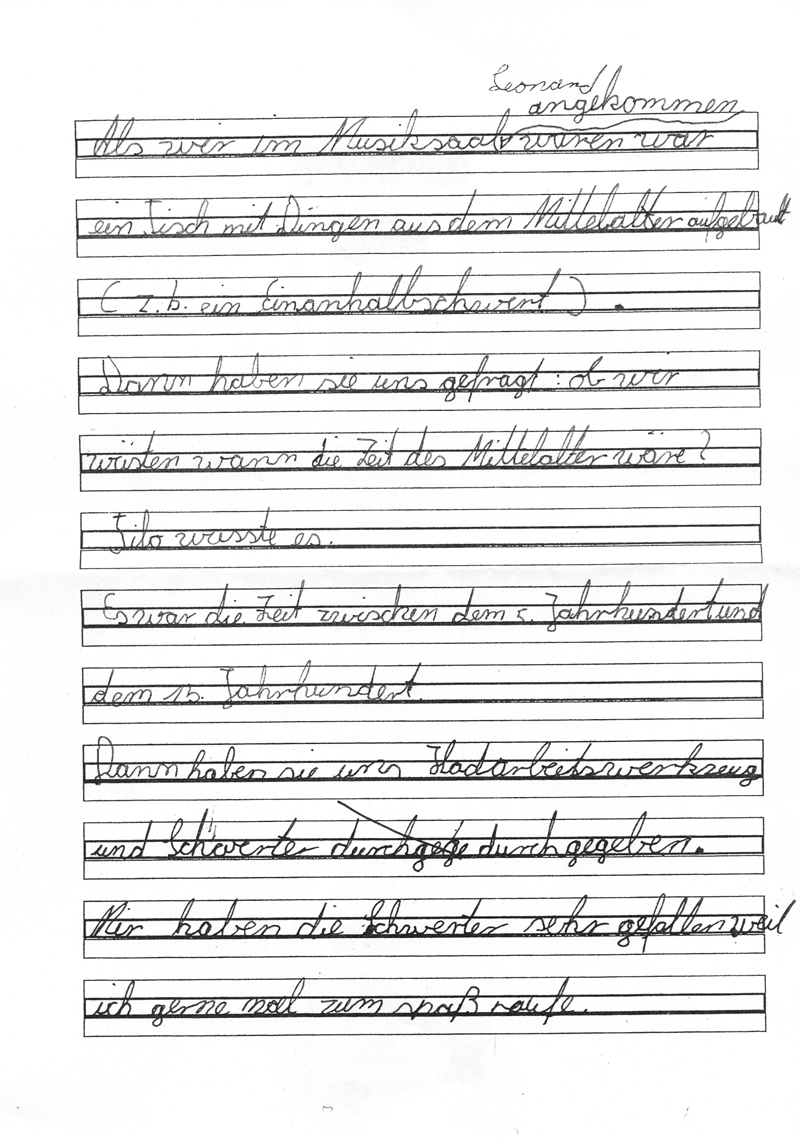 Leonard
angekommen
Als wir im Musiksaal waren war
ein Tisch mit Dingen aus dem Mittelalter aufgebaut
( z.b. ein Einanhalbschwert ) .
Dann haben sie uns gefragt : ob wir
wüsten wann die Zeit des Mittelalter wäre?
Tilo wusste es.
Es war die Zeit zwischen dem 5. Jahrhundert und
dem 15. Jahrhundert.
Dann haben sie uns Hadarbeitswerkzeug
und Schwerter durchgege durchgegeben.
Mir haben die Schwerter sehr gefallen weil
ich gerne mal zum spaß raufe.